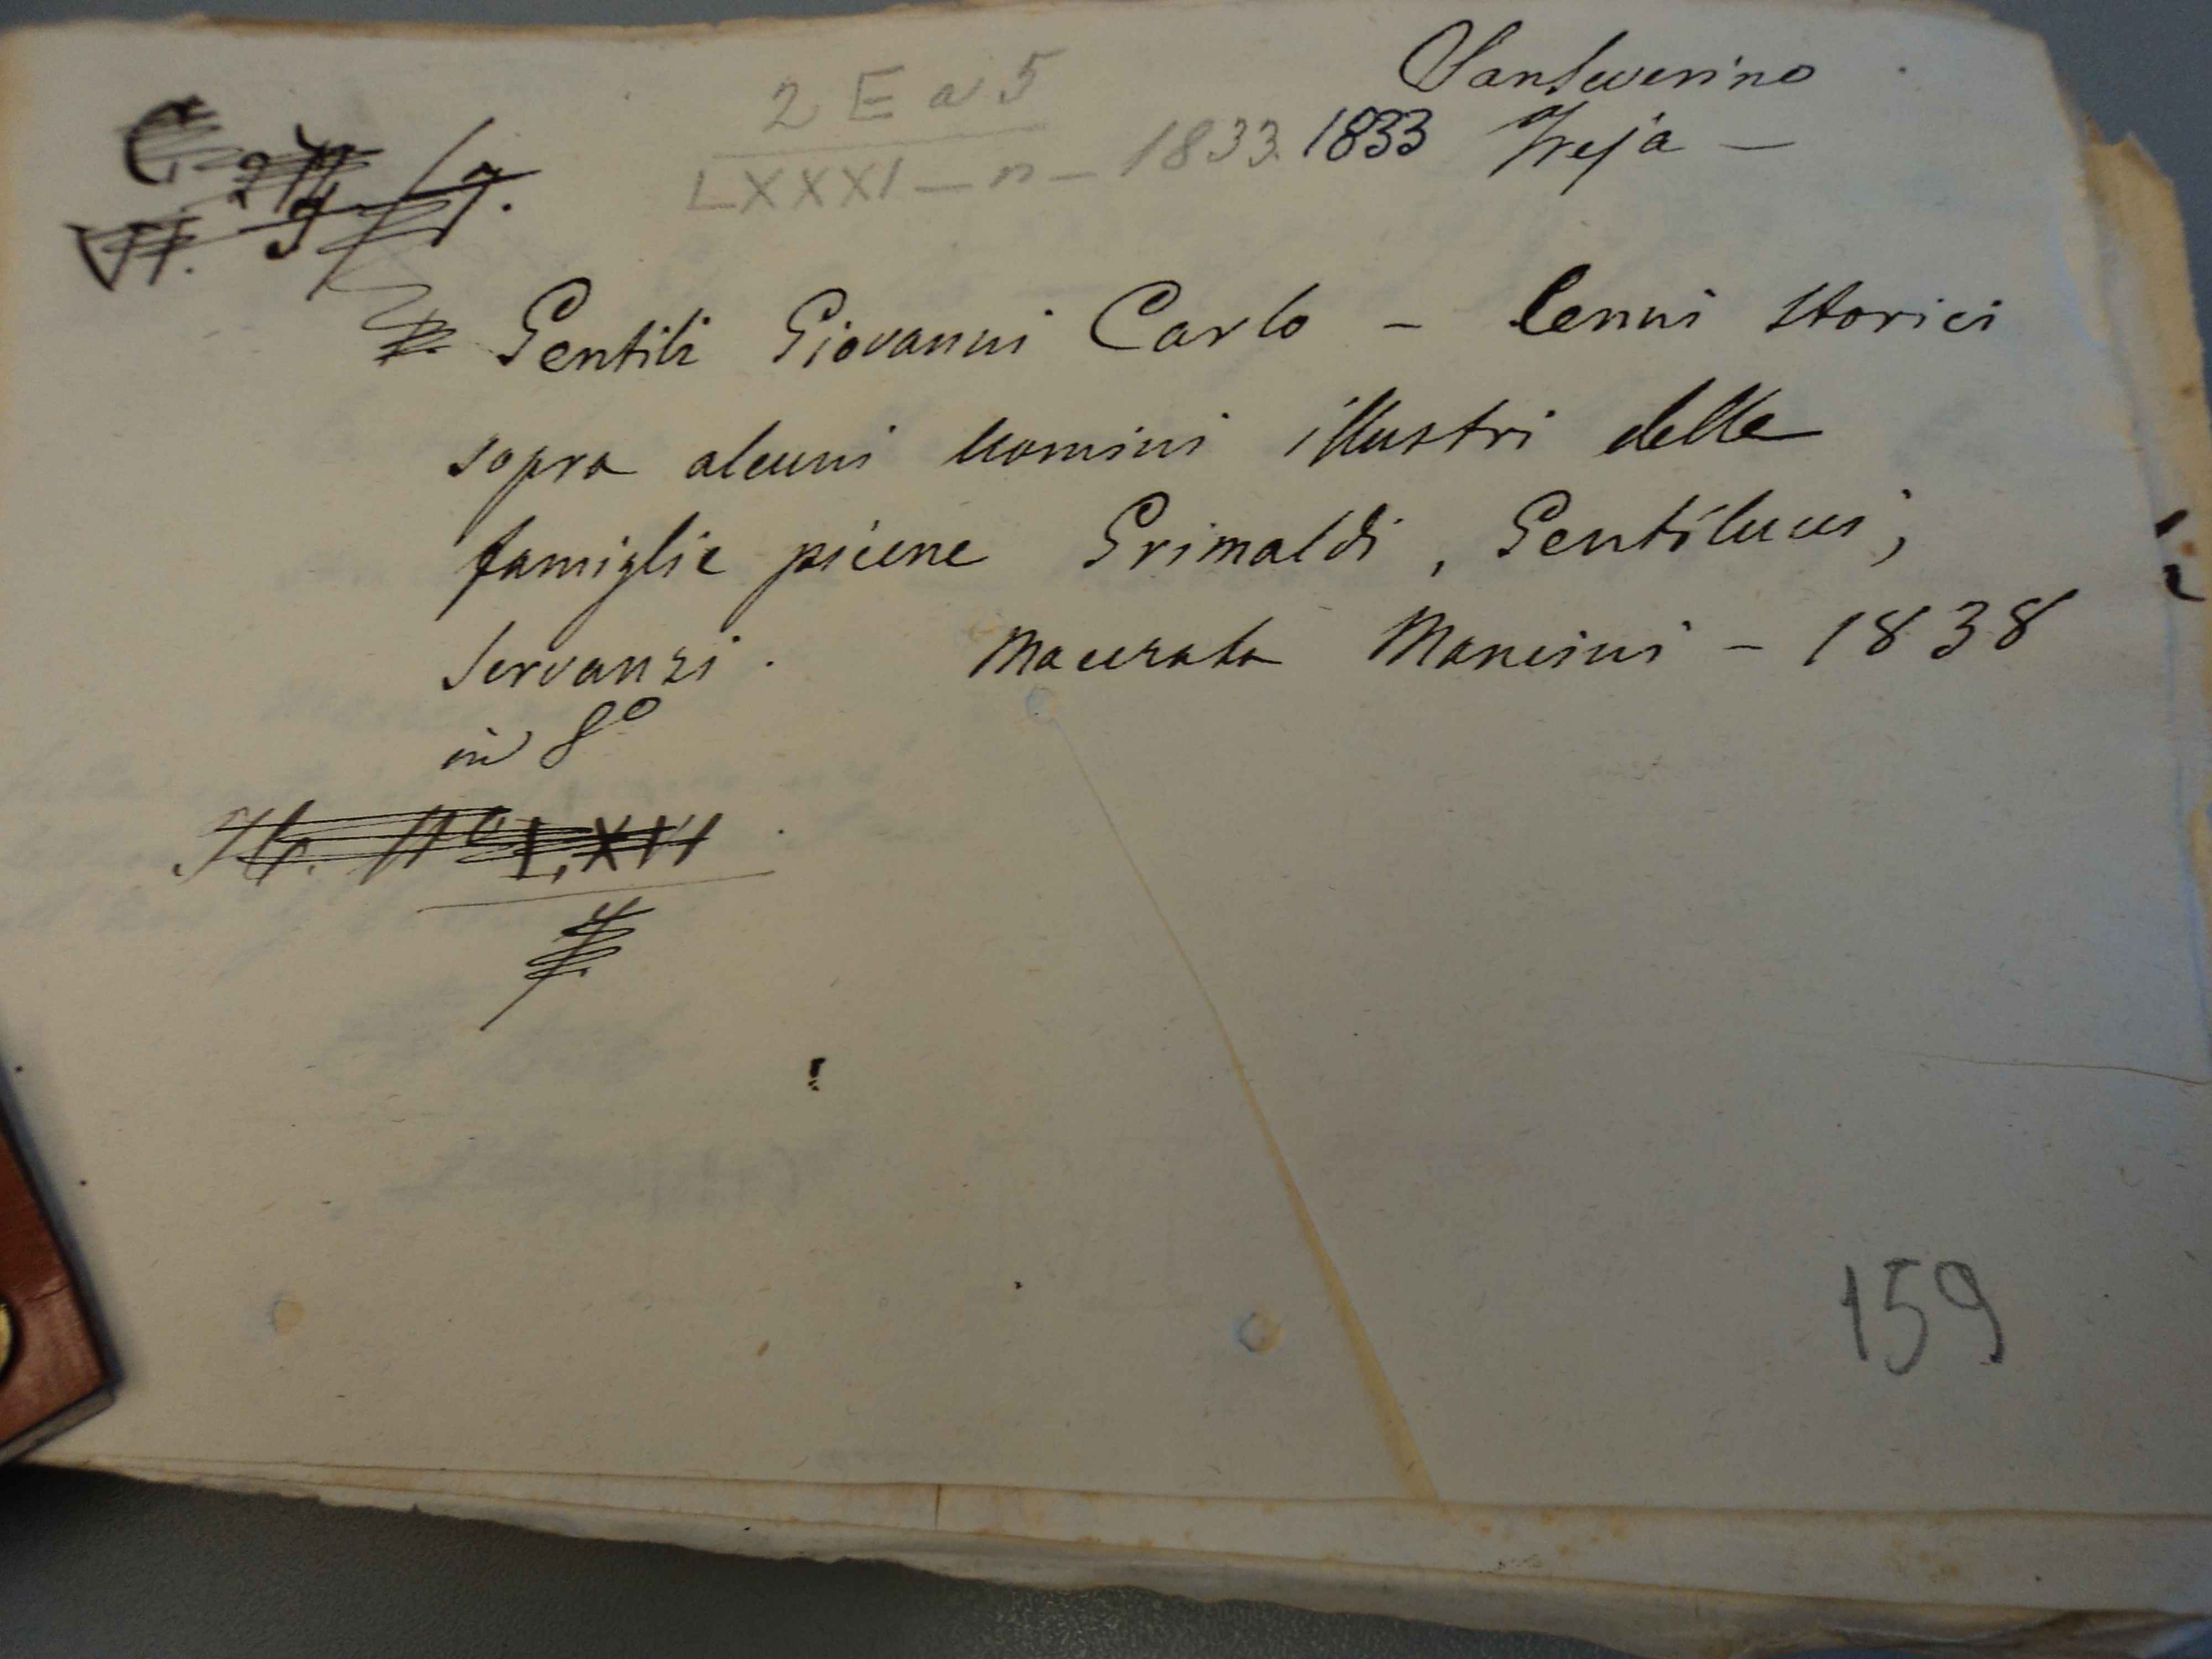 2 E a 5
LXXXI - n - 1833. 1833
SanSeverino
Treja -
Gentili Giovanni Carlo - Cenni storici
sopra alcuni uomini illustri delle
famiglie picene Grimaldi, Gentilucci,
Servanzi. Macerata Mancini - 1838
in 8º
159